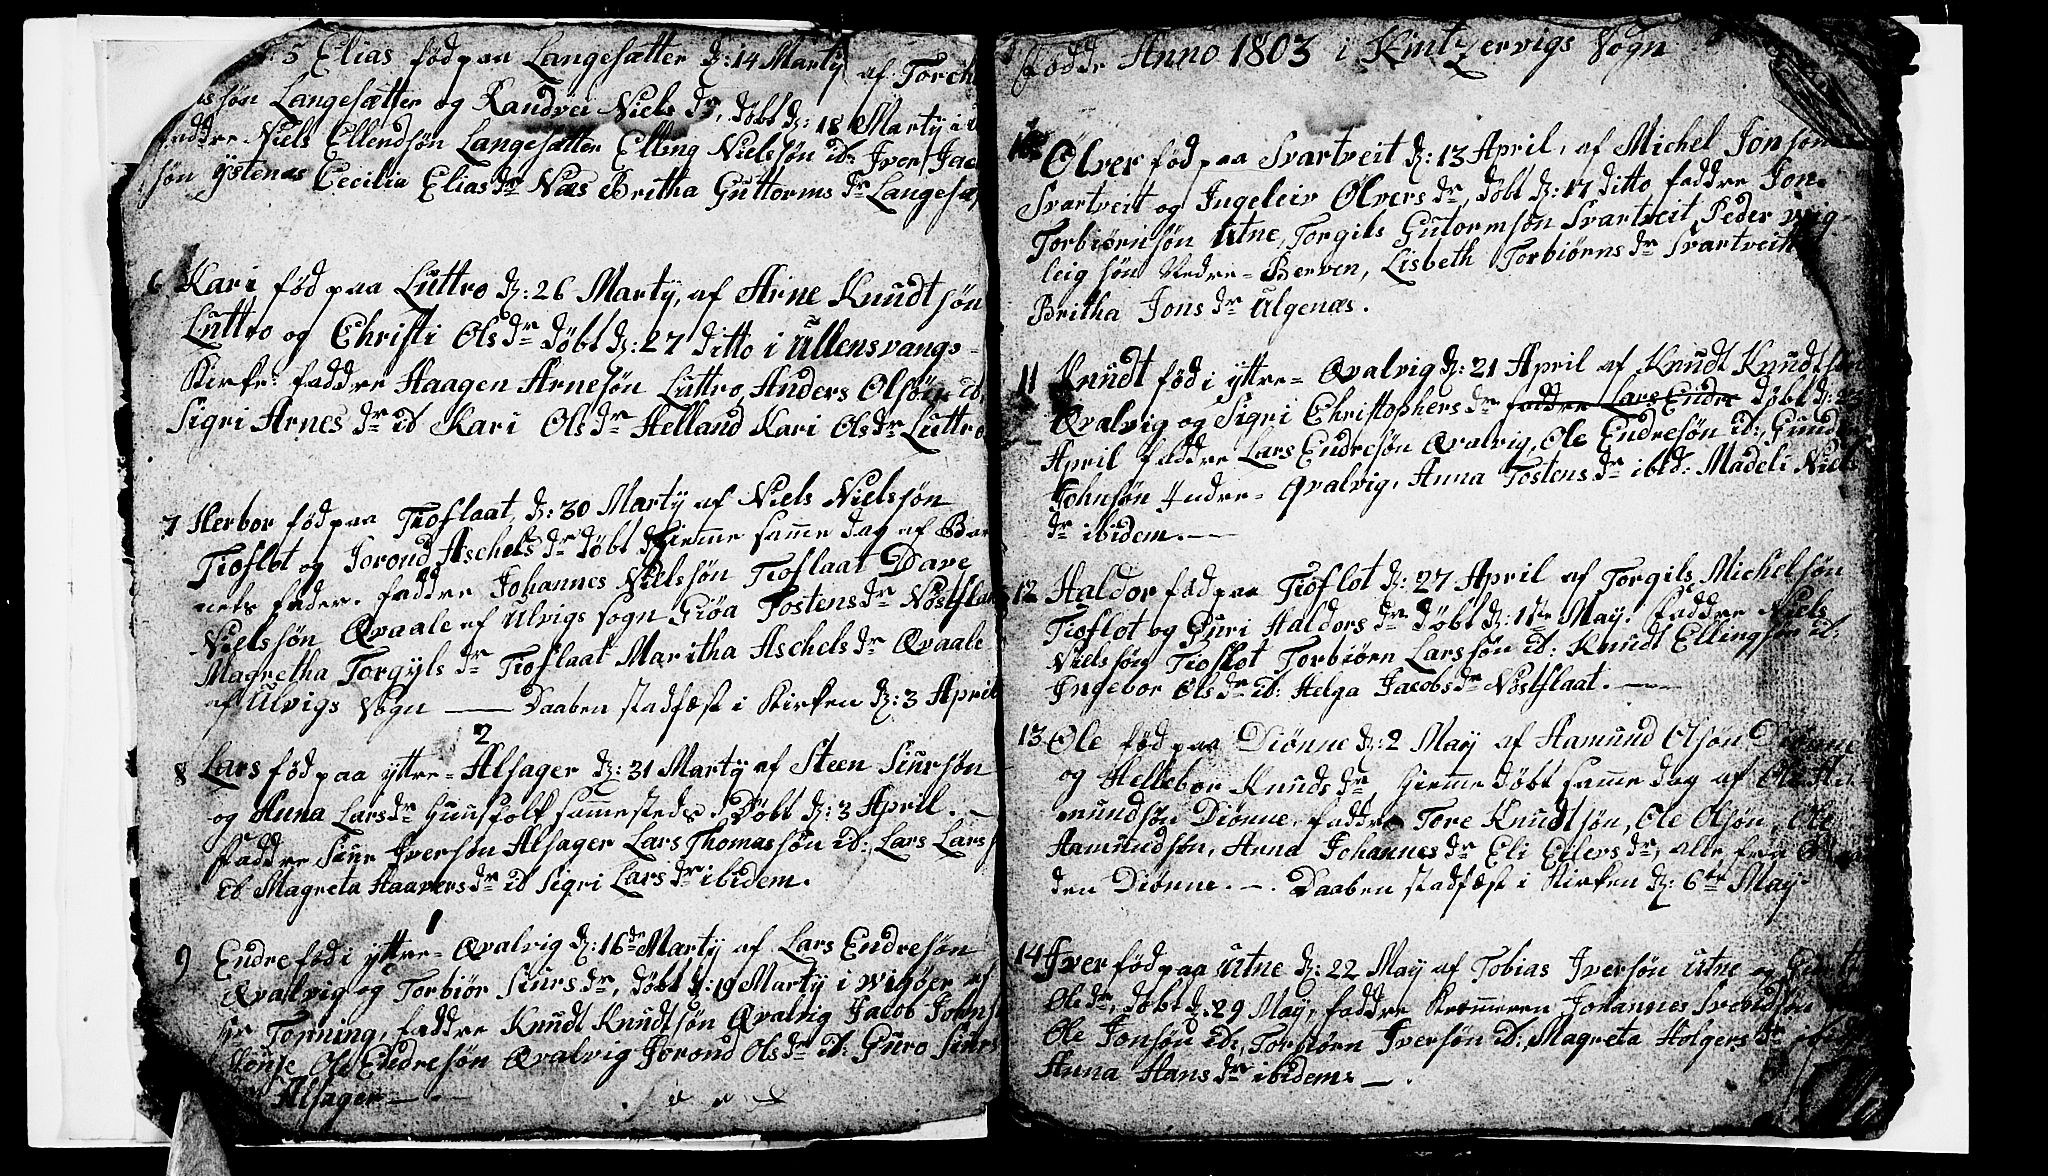 5 Elias föd paa Langesætter d: 14 Marty af
søn Langesætter og Randvei Niels dr, döbt d: 18 Marty i
faddre Niels Ellendsön Langesætter Elling Nielssön ib: Iver
sön ystenæs Cecilia Elias dr Næs Britha Guttorms dr Langesæ
6 Kari föd paa Luttro d: 26 Marty, af Arne Knudtsön
Luttro og Christi Ols dr döbt d: 27 ditto i Ullensvangs
Kirke: faddre Haagen Arnesön Luttro, Anders Olsön ib,
Sigri Arnes dr ib Kari Ols dr Helland Kari Ols dr Luttro
7 Herbor föd paa Tioflaat, d: 30 Marty af Niels Nielssön
Tioflot og Jorond Aschels dr döbt hiemme samme dag af Bar
nets fader. faddre Johannes Nielssön Tioflaat Dave
Nielssön Qvaale af Ulvigs sogn Giöa Tostens dr Nöstflaat
Magretha Torgyls dr Tioflaat Maritha Aschels dr Qvaale
af Ulvigs Sogn — Daaben stadfæst i Kirken d: 3 April
2
8 Lars föd paa yttre- Alsager d: 31 Marty af Steen Siursön
og Anna Lars dr huusfolk sammesteds Döbt d: 3 April. —
faddre Siur Iversön Alsager Lars Thomassön ib:, Lars Lars
ib Magreta Haavers dr ib Sigri Lars dr ibidem.
1
9 Endre föd i yttre- Qvalvig d: 16de Marty af Lars Endresön
Qvalvig og Torbiör Siurs dr, döbt d: 19 Marty i Wigöer af
Hr Tonning, faddre Knudt Knudtsön Qvalvig Jacob Johns
Ole Endresön Qvalvig Jorond Ols dr ib: Guro Siurs
Alsager —
födde Anno 1803 i Kintzervigs Sogn
Ölver föd paa Svartveit d: 13 April, af Michel Jonsön
Svartveit og Ingeleiv Ölvers dr, döbt d: 17 ditto faddre Jon
Torbiörnsön Utne, Torgils Gutormsön Svartveit, Peder wig-
leig sön Nedre- Berven, Lisbeth Torbiörns dr Svartveit
Britha Jons dr Ulgenæs.
11 Knudt föd i yttre- Qvalvig d: 21 April af Knudt Knudtsön
Qvalvig og Sigri Christophers dr faddre Lars Endre döbt d:
April faddre Lars Endresön Qvalvig, Ole Endresön ib:,
Johnsön Indre- Qvalvig, Anna Tostens dr ibid: Madeli Niels
dr ibidem. —
12 Haldor föd paa Tioflot d: 27 April af Torgils Michelsön
Tioflot og Guri Haldors dr döbt d: 1ste May. faddre Niels
Nielssön Tioflot Torbiörn Larssön ib: Knudt Ellingsön ib:
Ingebor Ols dr ib: Helga Jacobs dr Nöstflaat. —
13 Ole föd paa Diönne d: 2 May af Aamund Olsön Diönne
og Hellebor Knuds dr, hiemme döbt samme dag af Ole Aa-
mundsön Diönne. faddre Tore Knudtsön, Ole Olsön, Ole
Aamundsön, Anna Johannes dr Eli Eilers dr, alle fra
den Diönne. —. Daaben stadfæst i Kirken d: 6te May.
14 Iver föd paa Utne d: 22 May af Tobias Iversön Utne og
Ole dr, döbt d: 29 May, faddre Johannes
Ole Jonsön ib:, Torbiörn Iversön ib:, Magreta Holgers dr
Anna Hans dr ibidem. —.